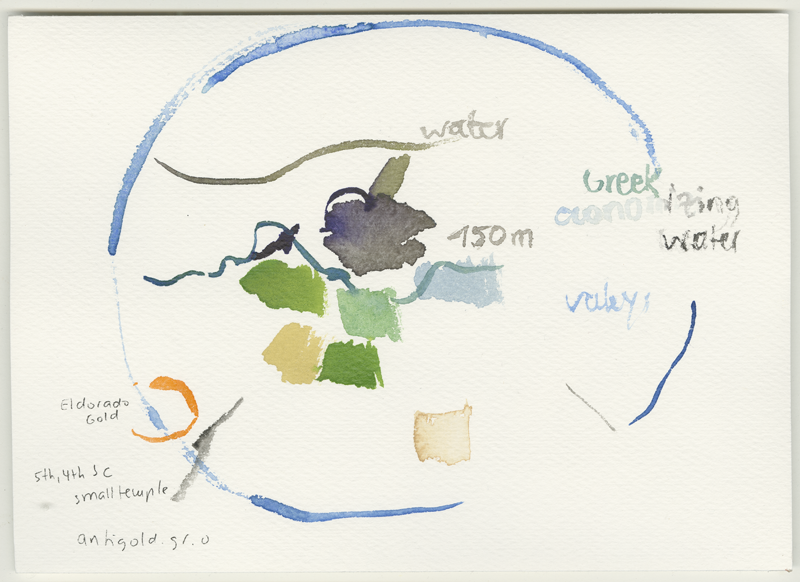 water
Greek
economizing
water
150m
valeys
Eldorado
Gold
5th, 4th
small temple
antigold.gr.o